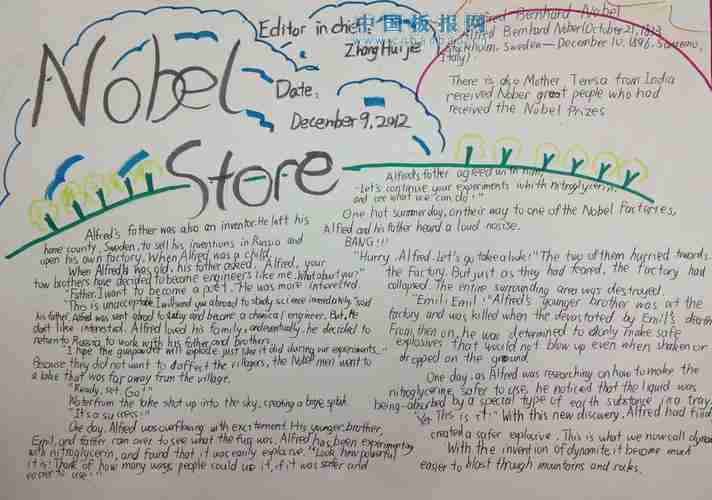 Nobel
Store
Editor in chief:
Zhang Hui jie
Date:
December 9, 2012
中国板报网
Alfred Bernhard Nobel
Alfred Bernhard Nober(October 21, 1833
Stockholm, Sweden—December 10, 1896,
Italy)
There is also Mother Teresa from India
received Nober great people who had
received the Nobel Prizes
Alfred's father was also an inventor. He left his
home county, Sweden, to sell his inventions in Russia and
open his own factory. When Alfred was a child.
When Alfred was old, his father asked, Alfred, your
tow brothers have decided to become engineers like me. What about you?"
"Father. I want to become a poet." He was more interested
"This is unacceptable I will send you abroad to study science immediately." said
his father. Alfred was sent abroad to study and become a chemical engineer. But, He
didt like interested. Alfred loved his family, and eventually, he decided to
return to Russia to work with his father and brothers.
"I hope the gunpowder will explode just like it did during our experiments.
Because they did not want to affect the villagers, the Nobel men went to
a lake that was far away from the village.
"Ready, set, Go!"
Water from the lake shot up into the sky, creating a large splash
"It's a success!"
One day, Alfred was overflowing with excitement. His younger brother,
Emil, and father ran over to see what the fuss was. Alfred has been experimenting
with nitroglycerin, and found that it was easily explosive. "Look how powerful
it is! Think of how many ways people could use it, if it was safer and
easier to use!"
Alfred's father agreed with him
"Let's continue your experiments with nitroglycerin,
and see what we can do!"
One hot summer day, on their way to one of the Nobel Factories,
Alfred and his father heard a loud nosise.
BANG!!!
"Hurry, Alfred. Let's go take a look!" The two of them hurried towards
the factory. But just as they had feared, the factory had
collapsed. The entire surrounding area was destroyed.
"Emil! Emil!" Alfred's younger brother was at the
factory and was killed when the devastated by Emil's death
From then on, he was determined to only make safe
explosives that would not blow up even when shaken or
dropped on the ground.
One day, as Alfred was researching on how to make the
nitroglycerine safer to use, he noticed that the liquid was
being absorbed by a special type of earth substance in a tray.
"This is it!" With this new discovery, Alfred had
created a safer explosive. This is what we now call
With the invention of dynamite, it became much
easier to blast through mountains and rocks.